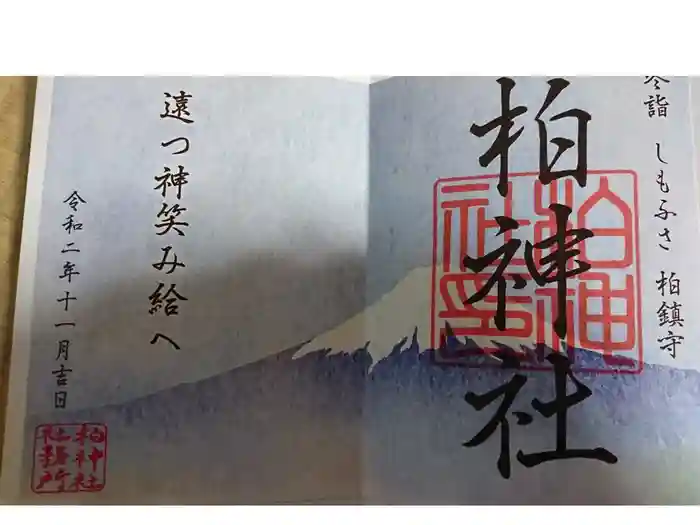 参詣 しもふさ 柏鎮守
柏神社
柏神社印
遠つ神笑み給へ
令和二年十一月吉日
柏神社社務所